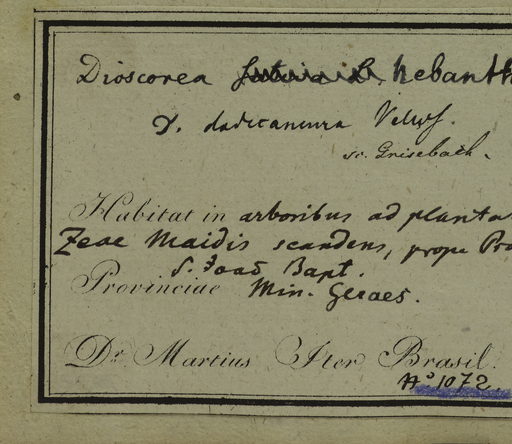 Dioscorea hebanth
D. dodecaneura Vellozs.
sc. Grisebach.
Habitat in arboribus ad planta
Zeae Maidis scandens, prope Pra
S. Joao Bapt.
Provinciae Min. Geraes.
Dr. Martius Iter Brasil.
No 1072.